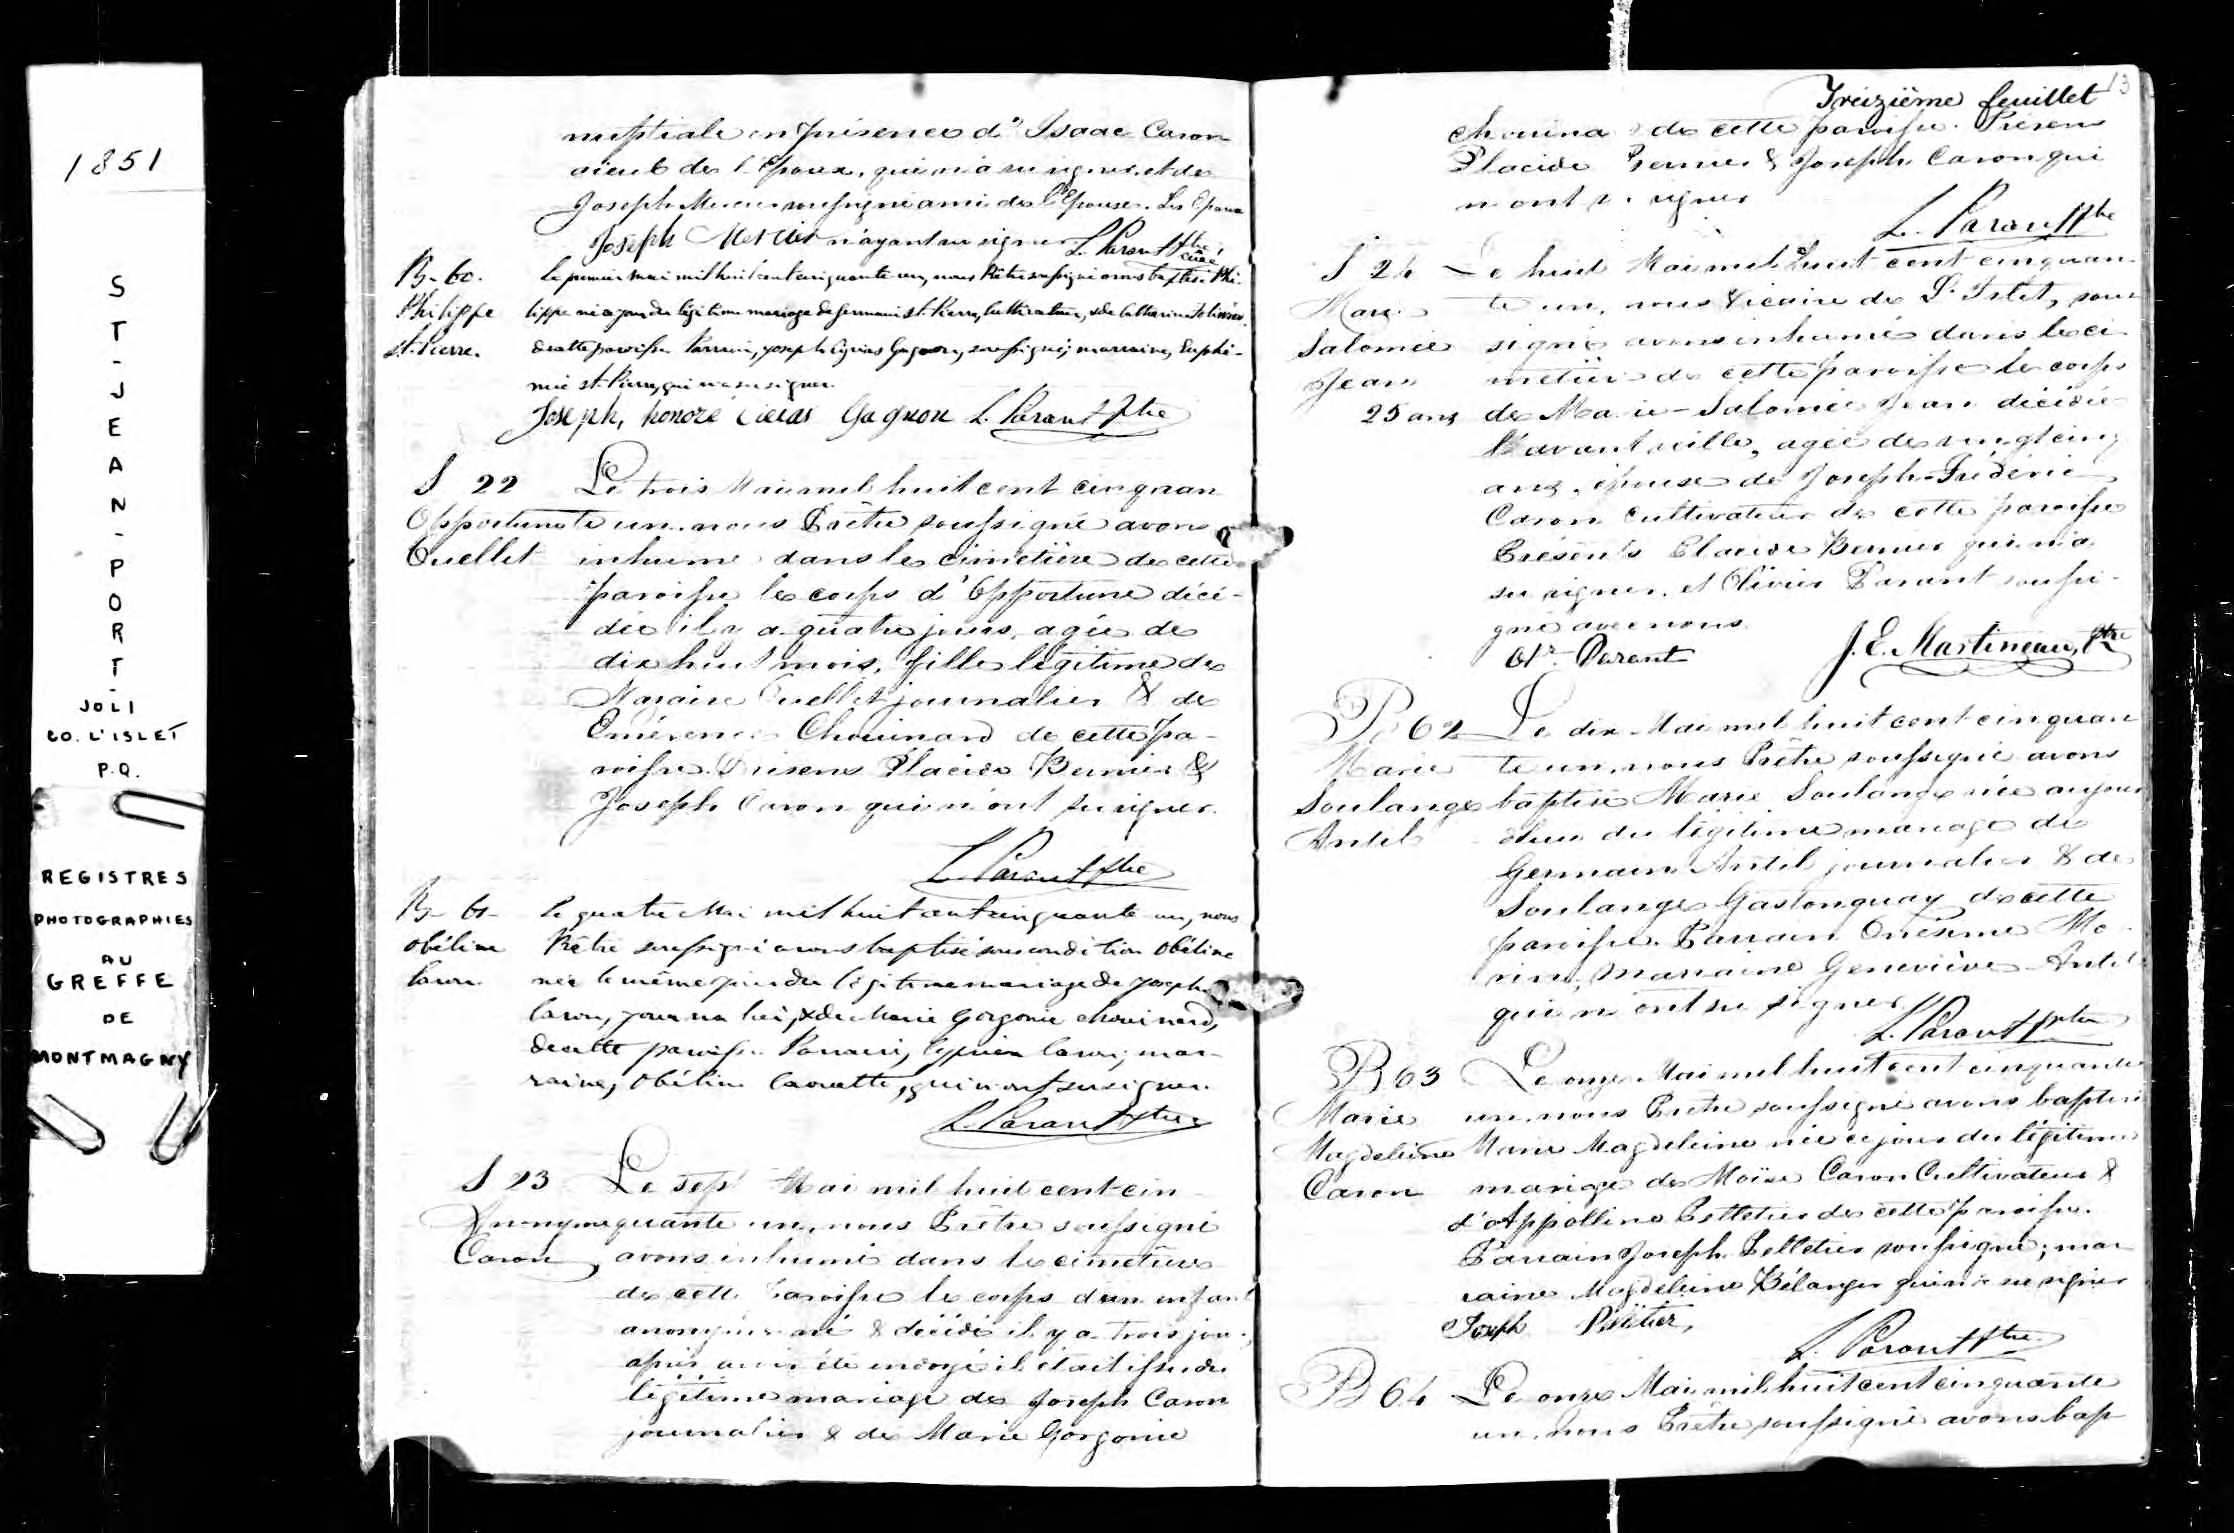 1851
ST-JEAN-PORT-
JOLI
CO. L'ISLET
P.Q.
REGISTRES
PHOTOGRAPHIES
AU
GREFFE
DE
MONTMAGNY
nuptiale en présence d' Isaac Caron
aieul de l'Epoux, qui n'a su signer et de
Joseph Mercier soussigné ami de l'Epouse. Les Epoux
Joseph Mercier n'ayant su signer. L. Parant Ptre curé
B-60. Le premier mai mil huit cent cinquante un, nous Prêtre soussigné avons baptisé Phi-
Philippe lippe né ce jour du légitime mariage de Germain St. Pierre, cultivateur, & de Catherine
St. Pierre. de cette paroisse Parrain, Joseph Gagnon, soussigné; marraine, Euphé-
mie St. Pierre, qui n'a su signer.
Joseph, honoré Gagnon L. Parant Ptre
S 22 Le trois Mai mil huit cent cinquan
Opportune te un. nous Prêtre soussigné avons
Ouellet inhumé dans le cimetière de cette
paroisse le corps d'Opportune décé-
dée il y a quatre jours, agée de
dix huit mois, fille légitime de
Nazaire Ouellet journalier & de
Emérence Chouinard de cette pa-
roisse. Présens Placide Bernier &
Joseph Caron qui n'ont su signer.
L. Parant Ptre
B-61- Le quatre Mai mil huit cent cinquante un, nous
Obéline Prêtre soussigné avons baptisé sous condition Obéline
Caron née le même jour du légitime mariage de Joseph
Caron, journalier, & de Marie Gorgonie Chouinard,
de cette paroisse. Parrain, Cyprien Caron; mar-
raine, Obéline Caouette, qui n'ont su signer.
L. Parant Ptre
S 23 Le sept Mai mil huit cent cin-
Anonyme quante un, nous Prêtre soussigné
Caron avons inhumé dans le cimetière
de cette Paroisse le corps d'un enfant
anonyme né & décédé il y a trois jours,
après avoir été ondoyé il était issu du
légitime mariage de Joseph Caron
journalier & de Marie Gorgonie
13
Treizième feuillet
Chouinard de cette paroisse. Présens
Placide Bernier & Joseph Caron qui
n'ont su signer
L. Parant Ptre
S 24 Le huit Mai mil huit cent cinquan-
Marie te un, nous Vicaire de L'Islet, sous-
Salomée signé avons inhumé dans le ci-
Jean metière de cette paroisse le corps
25 ans de Marie-Salomée Jean décédée
l'avant veille, agée de vingt cinq
ans, épouse de Joseph-Frédéric
Caron Cultivateur de cette paroisse
Présents Placide Bernier qui n'a
su signer, et Olivier Parant soussi-
gné avec nous.
Olr. Parant J. E. Martineau, Ptre
B 62 Le dix Mai mil huit cent cinquan
Marie te un, nous Prêtre soussigné avons
Soulange baptisé Marie Soulange née aujour
Antil d'hui du légitime mariage de
Germain Antil journalier & de
Soulange Gastonguay de cette
paroisse. Parrain Onésime Mo-
rin, marraine Geneviève Antil
qui n'ont su signer
L. Parant Ptre
B 63 Le onze Mai mil huit cent cinquante
Marie un, nous Prêtre soussigné avons baptisé
Magdeleine Marie Magdeleine née ce jour du légitime
Caron mariage de Moïse Caron Cultivateur &
d'Appolline Pelletier de cette paroisse.
Parrain Joseph Pelletier soussigné; mar
raine Magdeleine Bélanger qui n'a su signer
Joseph Peltier,
L. Parant Ptre
B 64 Le onze Mai mil huit cent cinquante
un, nous Prêtre soussigné avons bap